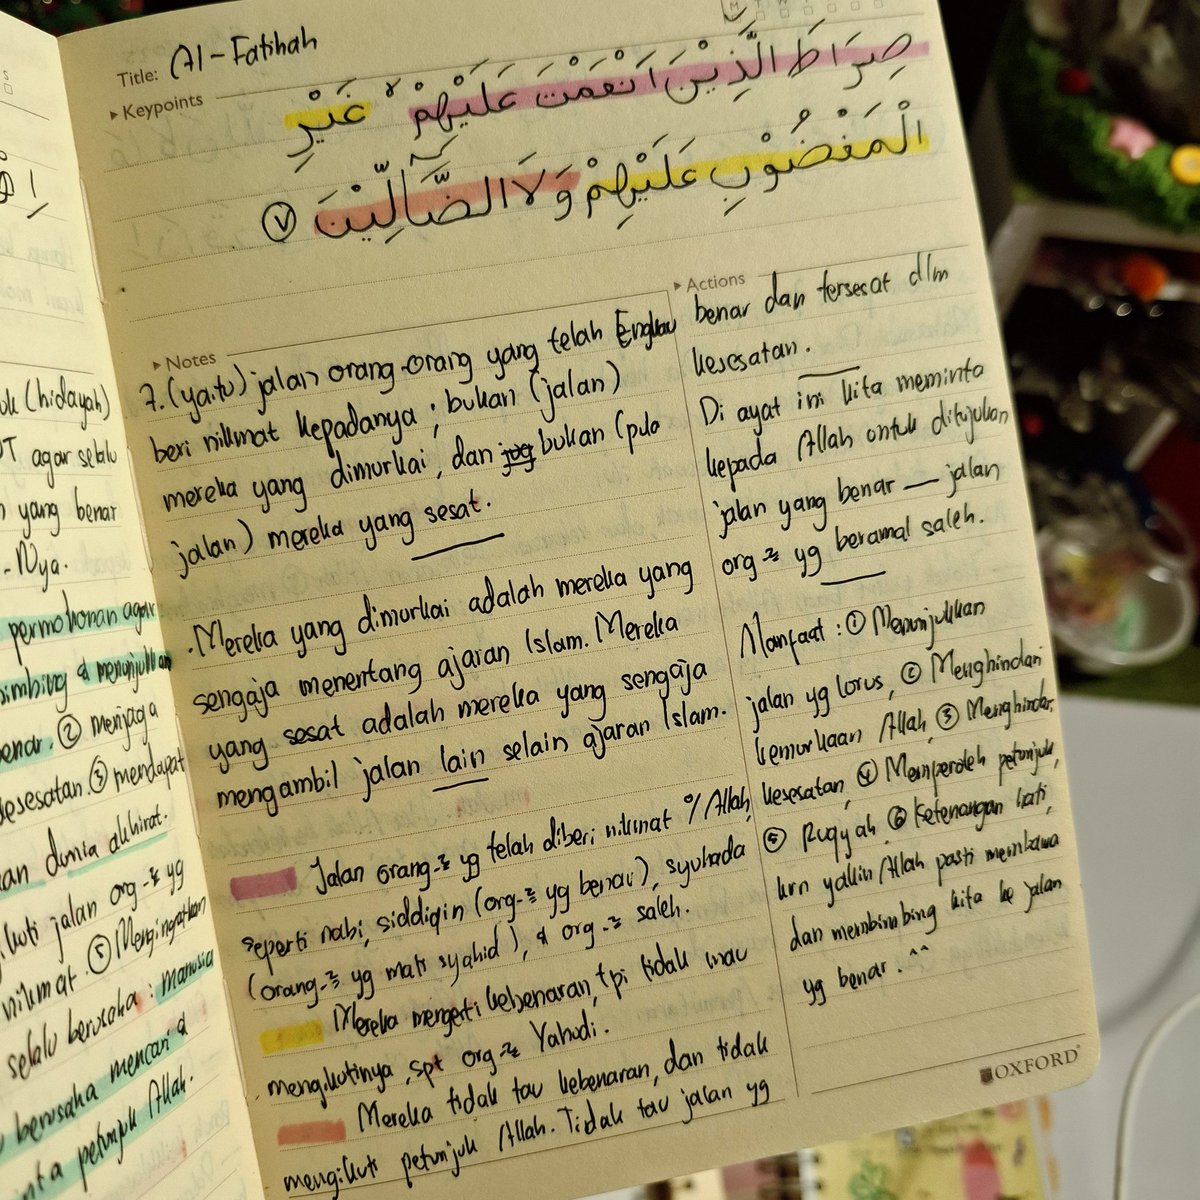 S
M T W
Title: Al-Fatihah
Keypoints
صِرَاطَ الَّذِيْنَ اَنْعَمْتَ عَلَيْهِمْ ۙ غَيْرِ
الْمَغْضُوْبِ عَلَيْهِمْ وَلَا الضَّاۤلِّيْنَ ٧
Notes
7. (yaitu) jalan orang-orang yang telah Engkau
beri nikmat kepadanya ; bukan (jalan)
mereka yang dimurkai, dan jug bukan (pula
jalan) mereka yang sesat.
. Mereka yang dimurkai adalah mereka yang
sengaja menentang ajaran Islam. Mereka
yang sesat adalah mereka yang sengaja
mengambil jalan lain selain ajaran Islam.
Jalan orang-² yg telah diberi nikmat o/ Allah,
seperti nabi, siddiqin (org-² yg benar), syuhada
(orang-² yg mati syahid), & org-² saleh.
Mereka mengerti kebenaran, tpi tidak mau
mengikutinya, spt org-² Yahudi.
Mereka tidak tau kebenaran, dan tidak
mengikuti petunjuk Allah. Tidak tau jalan yg
Actions
benar dan tersesat dlm
kesesatan.
Di ayat ini kita meminta
kepada Allah untuk ditujukan
jalan yang benar — jalan
org-² yg beramal saleh.
Manfaat : ① Menunjukkan
jalan yg lurus, ② Menghindari
kemurkaan Allah, ③ Menghindar
kesesatan, ④ Memperoleh petunjuk,
⑤ Ruqyah, ⑥ Ketenangan hati,
krn yakin Allah pasti membawa
dan membimbing kita ke jalan
yg benar. ^^
OXFORD
uk (hidayah)
T agar selalu
yang benar
-Nya.
permohonan agar
imbing & menunjukkan
enar. ② menjaga
kesesatan ③ mendapat
an dunia akhirat.
kuti jalan org-² yg
nikmat. ⑤ Mengingatkan
selalu berusaha : manusia
berusaha mencari &
nta petunjuk Allah.